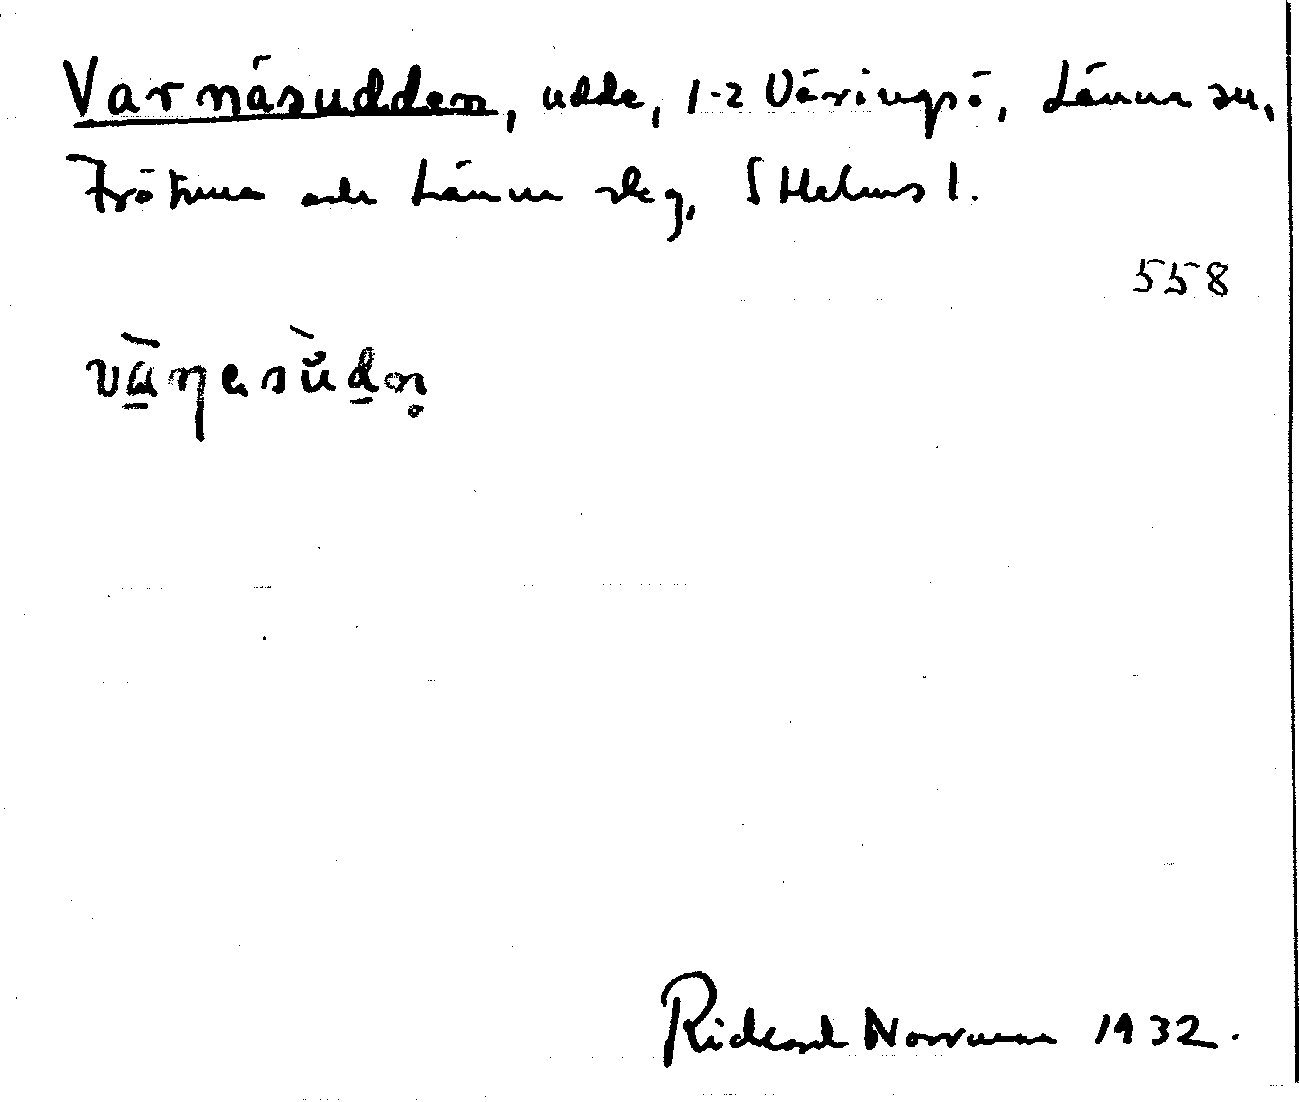 Varnäsudden, udde, 1-2 Väringsö, Länna sn,
Frötuna och Länna skg, Sthlms l.
558
Rickard Norrman 1932.